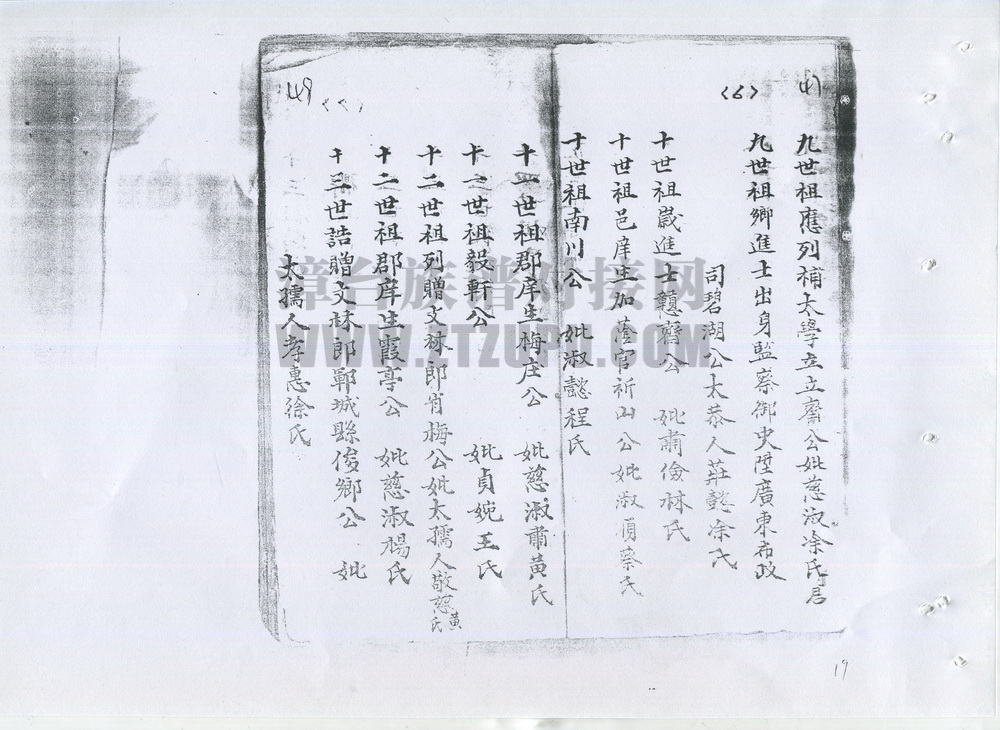 41
<6>
九世祖應列補太學立立齋公妣慈淑凃氏居
九世祖鄉進士出身監察御史陞廣東布政
司碧湖公太恭人莊懿凃氏
十世祖歲進士懿齋公 妣肅儉林氏
十世祖邑庠生加蔭官祈山公妣淑順蔡氏
十世祖南川公 妣淑懿程氏
49
十一世祖郡庠生梅庄公 妣慈淑肅黃氏
十二世祖毅軒公 妣貞婉王氏
十二世祖列贈文林郎肖梅公妣太孺人敬慈黃氏
十二世祖郡庠生霞亭公 妣慈淑楊氏
十三世誥贈文林郎鄲城縣俊鄉公 妣
太孺人孝惠徐氏
19
漳台族谱对接网
WWW.ZTZUPU.COM